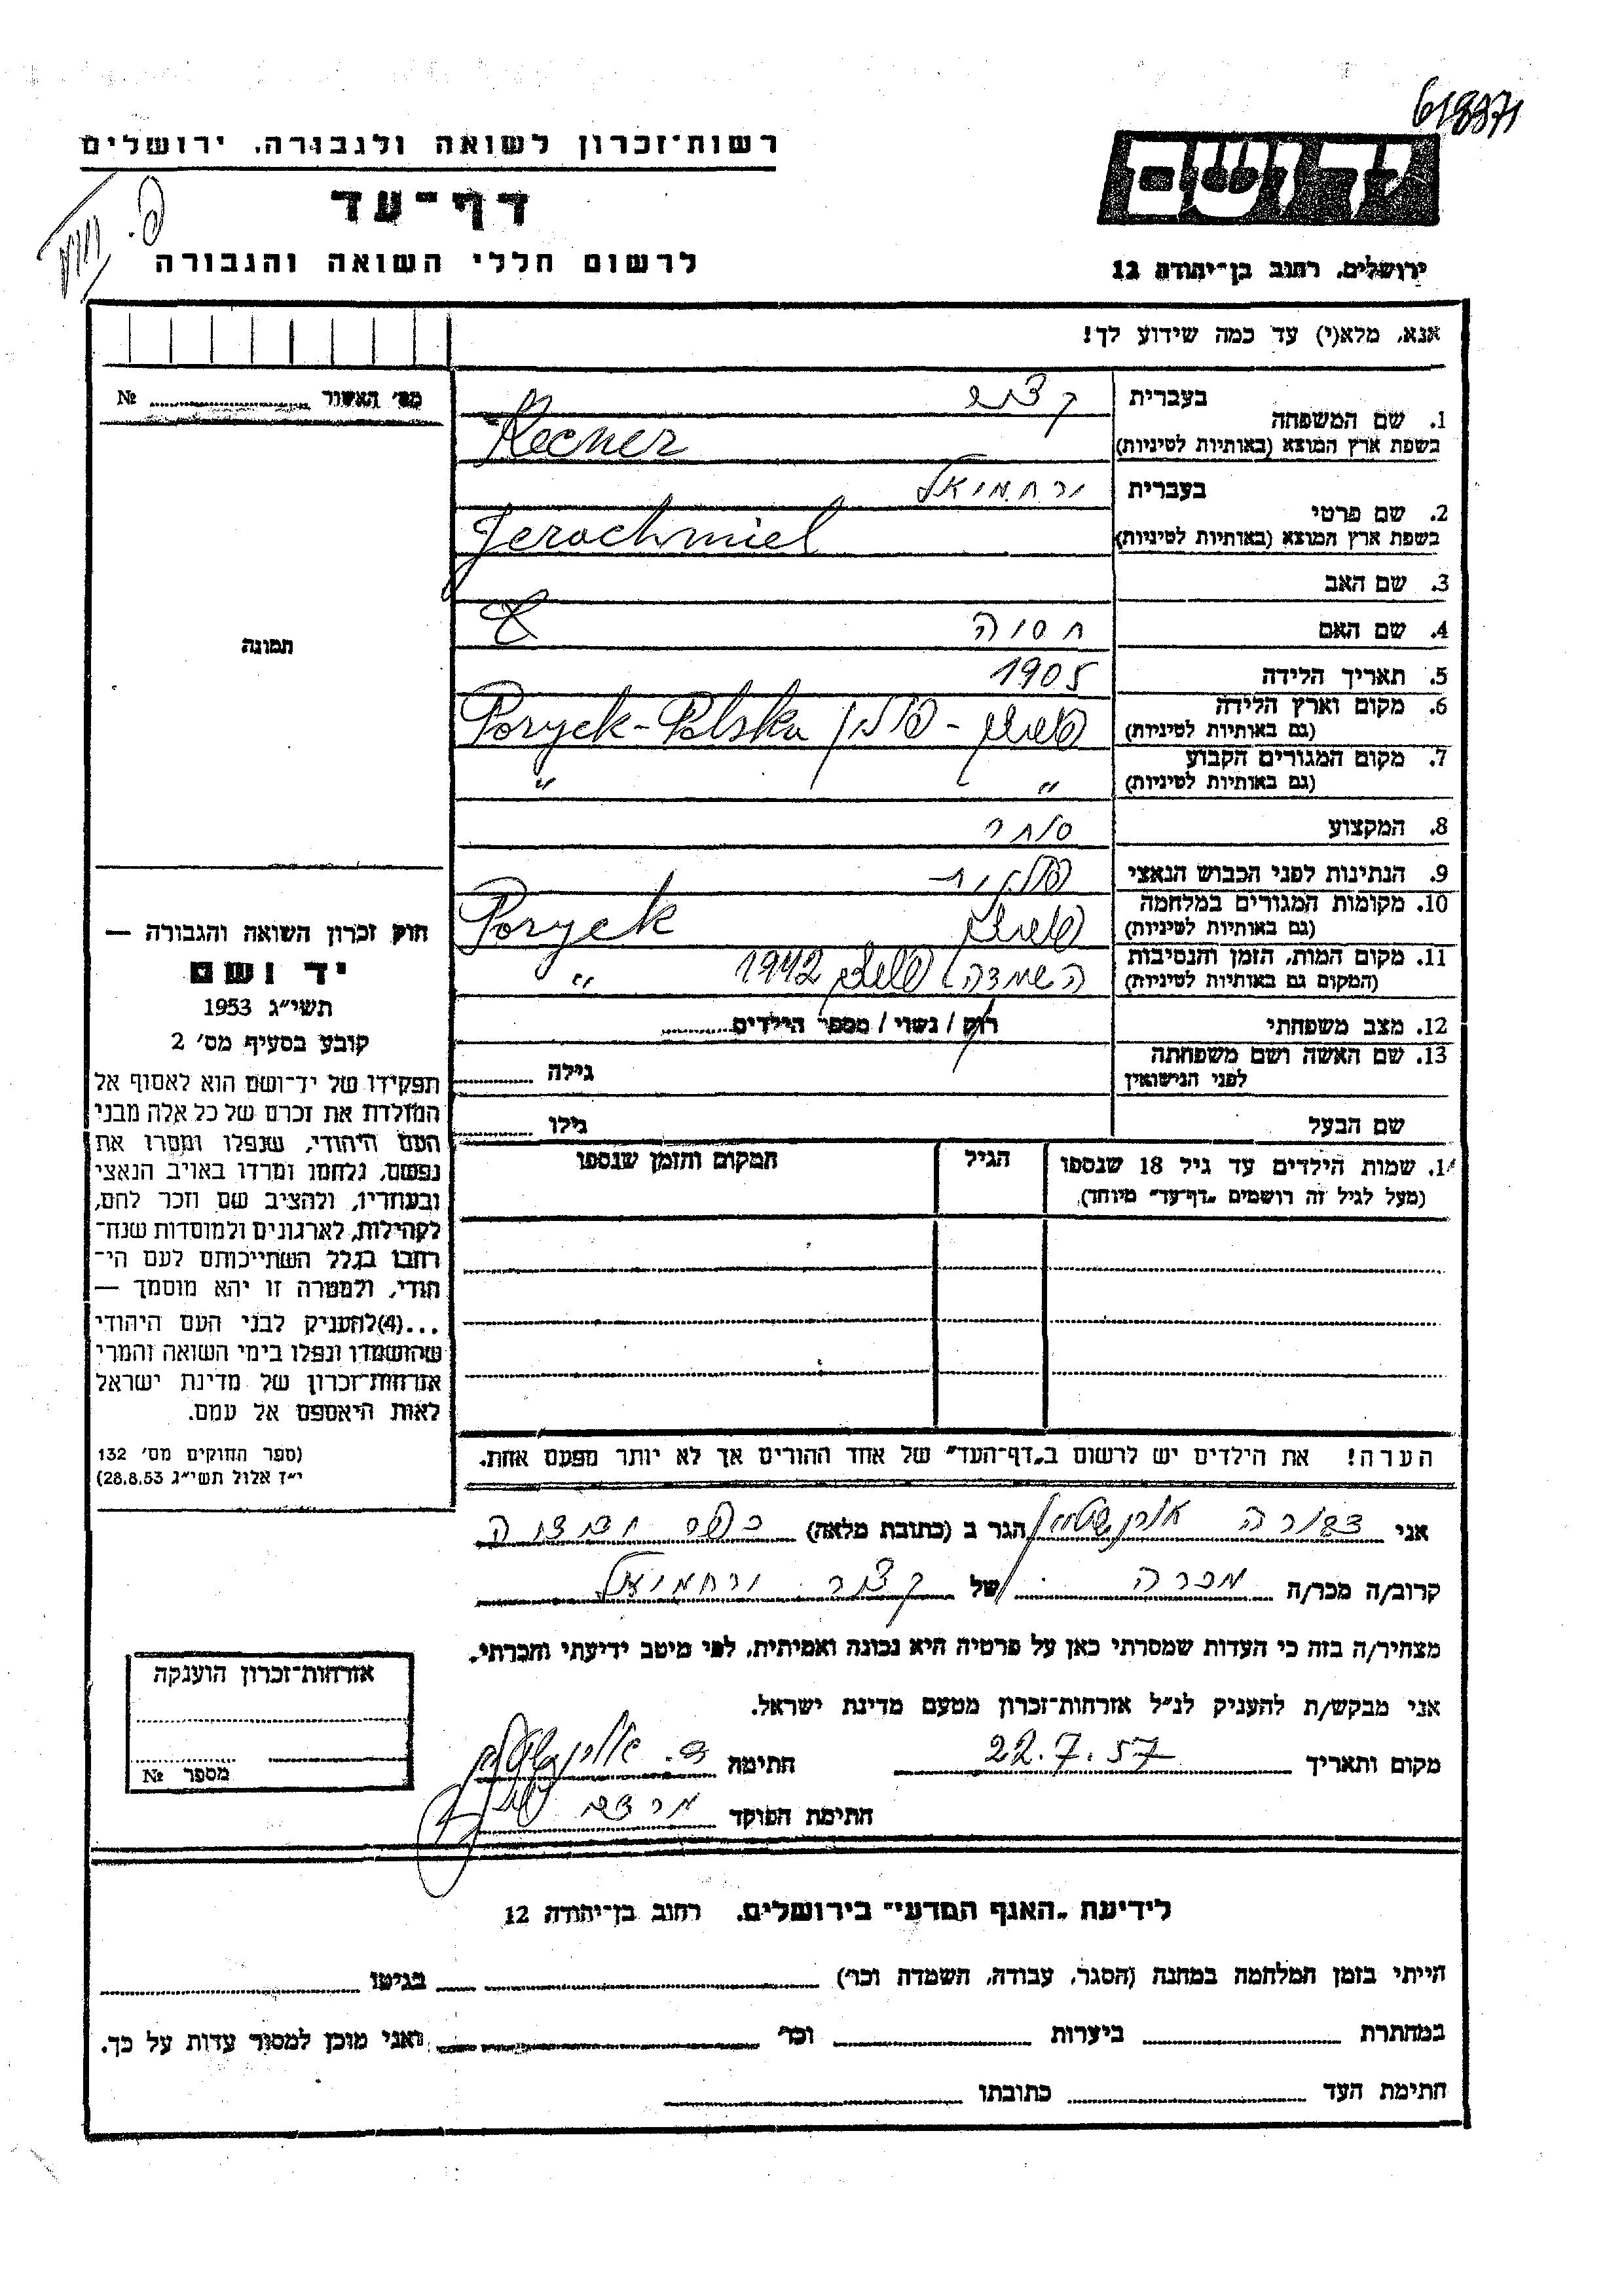 618871
רשות־זכרון לשואה ולגבורה. ירושלים
דף־עד
לרשום חללי השואה והגבורה
ירושלים. רחוב בן־יהודה 12
אנא, מלא(י) עד כמה שידוע לך!
מס׳ האשור № 
תמונה
1. שם המשפחה
בעברית
בשפת ארץ המוצא (באותיות לטיניות)
Kecner
2. שם פרטי
בעברית ירחמיאל
בשפת ארץ המוצא (באותיות לטיניות)
Jerachmiel
3. שם האב
4. שם האם חסיה
5. תאריך הלידה 1905
6. מקום וארץ הלידה
(גם באותיות לטיניות)
פוריצק - פולין Poryck-Polska
7. מקום המגורים הקבוע
(גם באותיות לטיניות)
״ ״
8. המקצוע סוחר
9. הנתינות לפני הכבוש הנאצי פולנית
10. מקומות המגורים במלחמה
(גם באותיות לטיניות)
פוריצק Poryck
11. מקום המות, הזמן והנסיבות
(המקום גם באותיות לטיניות)
השמדה פוריצק 1942 ״
12. מצב משפחתי רוק / נשוי / מספר הילדים
13. שם האשה ושם משפחתה
לפני הנישואין
גילה
שם הבעל גילו
14. שמות הילדים עד גיל 18 שנספו הגיל המקום והזמן שנספו
(מעל לגיל זה רושמים „דף־עד״ מיוחד)
הערה! את הילדים יש לרשום ב„דף־העד״ של אחד ההורים אך לא יותר מפעם אחת.
חוק זכרון השואה והגבורה —
יד ושם
תשי״ג 1953
קובע בסעיף מס׳ 2
תפקידו של יד־ושם הוא לאסוף אל
המולדת את זכרם של כל אלה מבני
העם היהודי, שנפלו ומסרו את
נפשם, נלחמו ומרדו באויב הנאצי
ובעוזריו, ולהציב שם וזכר להם,
לקהילות, לארגונים ולמוסדות שנח־
רבו בגלל השתייכותם לעם הי־
הודי, ולמטרה זו יהא מוסמך —
...(4)להעניק לבני העם היהודי
שהושמדו ונפלו בימי השואה והמרי
אזרחות־זכרון של מדינת ישראל
לאות היאספם אל עמם.
(ספר החוקים מס׳ 132
י״ז אלול תשי״ג 28.8.53)
אני הגר ב (כתובת מלאה) כפר
קרוב/ה מכר/ה מכרה של ירחמיאל
מצהיר/ה בזה כי העדות שמסרתי כאן על פרטיה היא נכונה ואמיתית, לפי מיטב ידיעתי והכרתי.
אני מבקש/ת להעניק לנ״ל אזרחות־זכרון מטעם מדינת ישראל.
מקום ותאריך 22.7.57 חתימה
חתימת הפוקד
אזרחות־זכרון הוענקה
מספר №
לידיעת „האגף המדעי״ בירושלים. רחוב בן־יהודה 12
הייתי בזמן המלחמה במחנה (הסגר, עבודה, השמדה וכר׳) בגיטו
במחתרת ביערות וכר׳ ואני מוכן למסור עדות על כך.
חתימת העד כתובתו